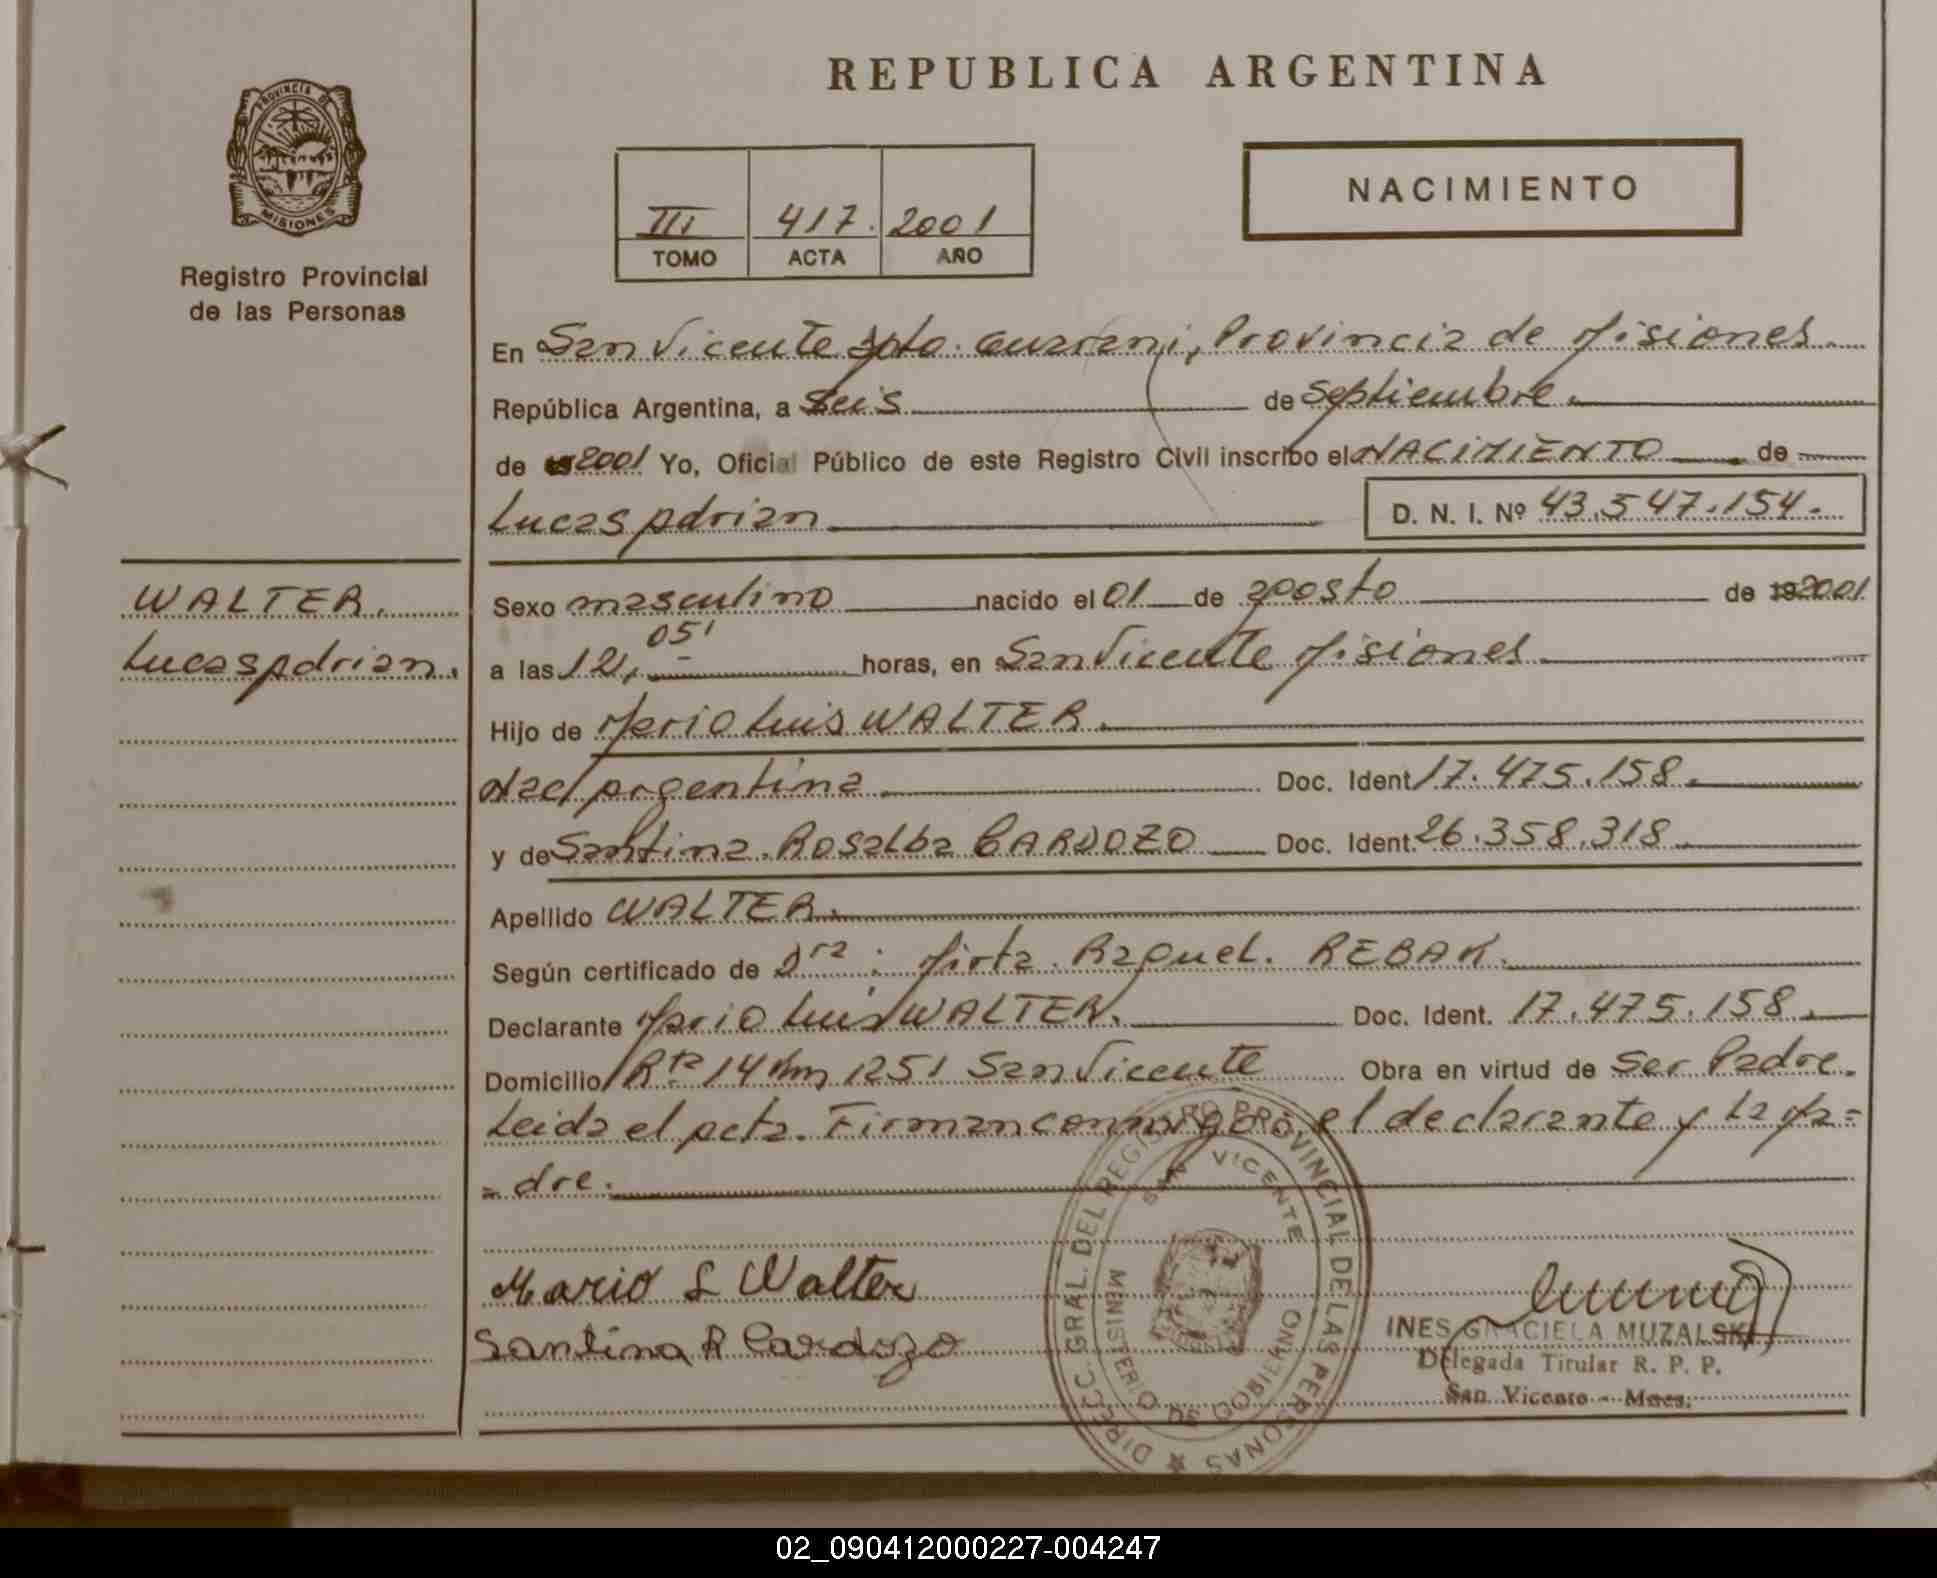 REPUBLICA ARGENTINA
PROVINCIA DE
MISIONES
Registro Provincial
de las Personas
III 417. 2001
TOMO ACTA AÑO
NACIMIENTO
En San Vicente Dpto. Guarani, Provincia de Misiones.
República Argentina, a Seis de Septiembre.
de 2001 Yo, Oficial Público de este Registro Civil inscribo el NACIMIENTO de
Lucas Adrian
D. N. I. Nº 43.547.154.
WALTER.
Lucas Adrian.
Sexo masculino nacido el 01 de agosto de 192001
a las 12, 05' horas, en San Vicente Misiones
Hijo de Mario Luis WALTER.
Nac/ Argentina. Doc. Ident. 17.475.158.
y de Santina. Rosalba CARDOZO Doc. Ident. 26.358.318.
Apellido WALTER.
Según certificado de Dra: Mirta. Raquel. REBAK.
Declarante Mario Luis WALTER. Doc. Ident. 17.475.158.
Domicilio Rta 14 Km 1251 San Vicente Obra en virtud de Ser Padre.
Leida el Acta. Firman conmigo, el declarante y La Ma=
= dre.
Mario L Walter
Santina R Cardozo
DIRECC. GRAL. DEL REGISTRO PROVINCIAL DE LAS PERSONAS
SAN VICENTE
MINISTERIO DE GOBIERNO
INES GRACIELA MUZALSKI
Delegada Titular R. P. P.
San Vicente - Mnes.
02_090412000227-004247